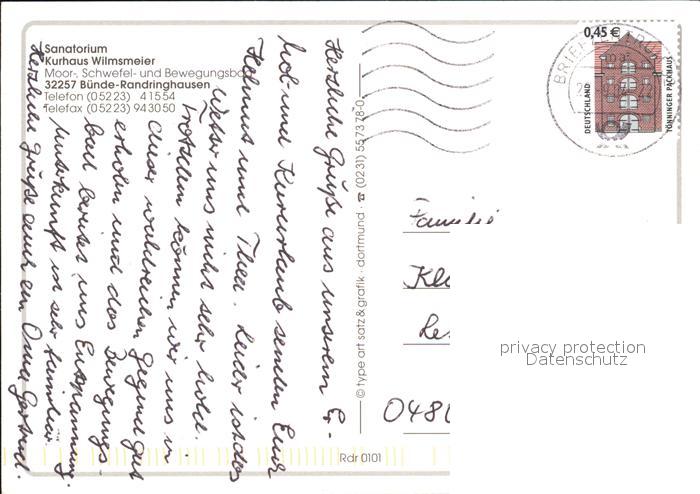 Sanatorium
Kurhaus Wilmsmeier
Moor-, Schwefel- und Bewegungsbad
32257 Bünde-Randringhausen
Telefon (05223) 41554
Telefax (05223) 943050
Herzliche Grüße aus unserem Er-
hol- und Kururlaub senden Euch
und Thea. Leider ist das
Wetter uns nicht sehr hold.
Trotzdem können wir uns in
dieser waldreichen Gegend gut
erholen und das Bewegungs-
bad bereitet uns Entspannung.
Unterkunft ist sehr familiär.
Herzliche Grüße auch an Oma
© type art satz & grafik · dortmund · ☎ (0231) 557378-0
Rdr 0101
BRIEF
0,45 €
DEUTSCHLAND
TÖNNINGER PACKHAUS
Familie
Kl
Le
048
privacy protection
Datenschutz